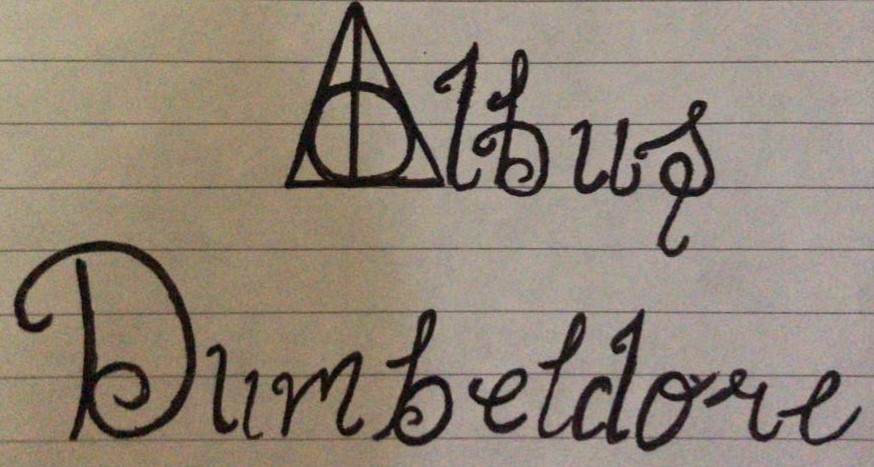 Albus
Dumbeldore